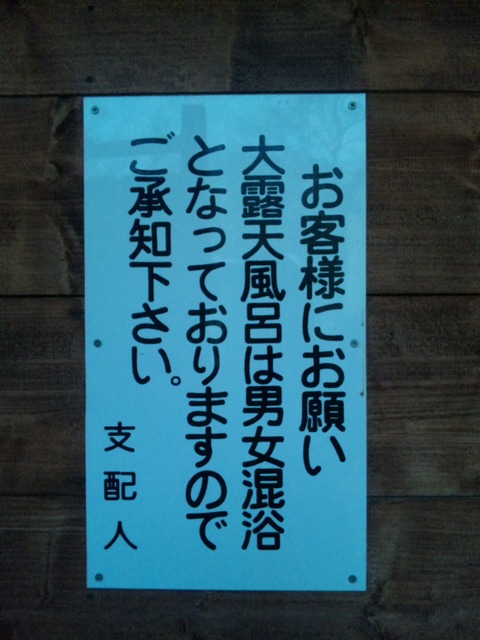 お客様にお願い
大露天風呂は男女混浴
となっておりますので
ご承知下さい。
支配人